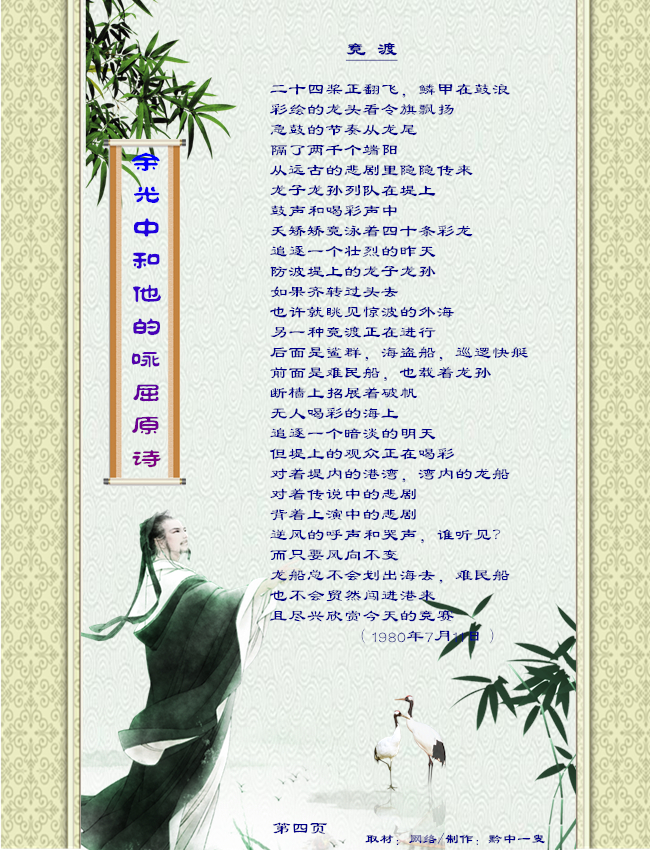 竞 渡
二十四桨正翻飞，鳞甲在鼓浪
彩绘的龙头看令旗飘扬
急鼓的节奏从龙尾
隔了两千个端阳
从远古的悲剧里隐隐传来
龙子龙孙列队在堤上
鼓声和喝彩声中
夭矫矫竞泳着四十条彩龙
追逐一个壮烈的昨天
防波堤上的龙子龙孙
如果齐转过头去
也许就眺见惊波的外海
另一种竞渡正在进行
后面是鲨群，海盗船，巡逻快艇
前面是难民船，也载着龙孙
断樯上招展着破帆
无人喝彩的海上
追逐一个暗淡的明天
但堤上的观众正在喝彩
对着堤内的港湾，湾内的龙船
对着传说中的悲剧
背着上演中的悲剧
逆风的呼声和哭声，谁听见？
而只要风向不变
龙船总不会划出海去，难民船
也不会贸然闯进港来
且尽兴欣赏今天的竞赛
（1980年7月11日）
余光中和他的咏屈原诗
第四页
取材：网络/制作：黔中一叟